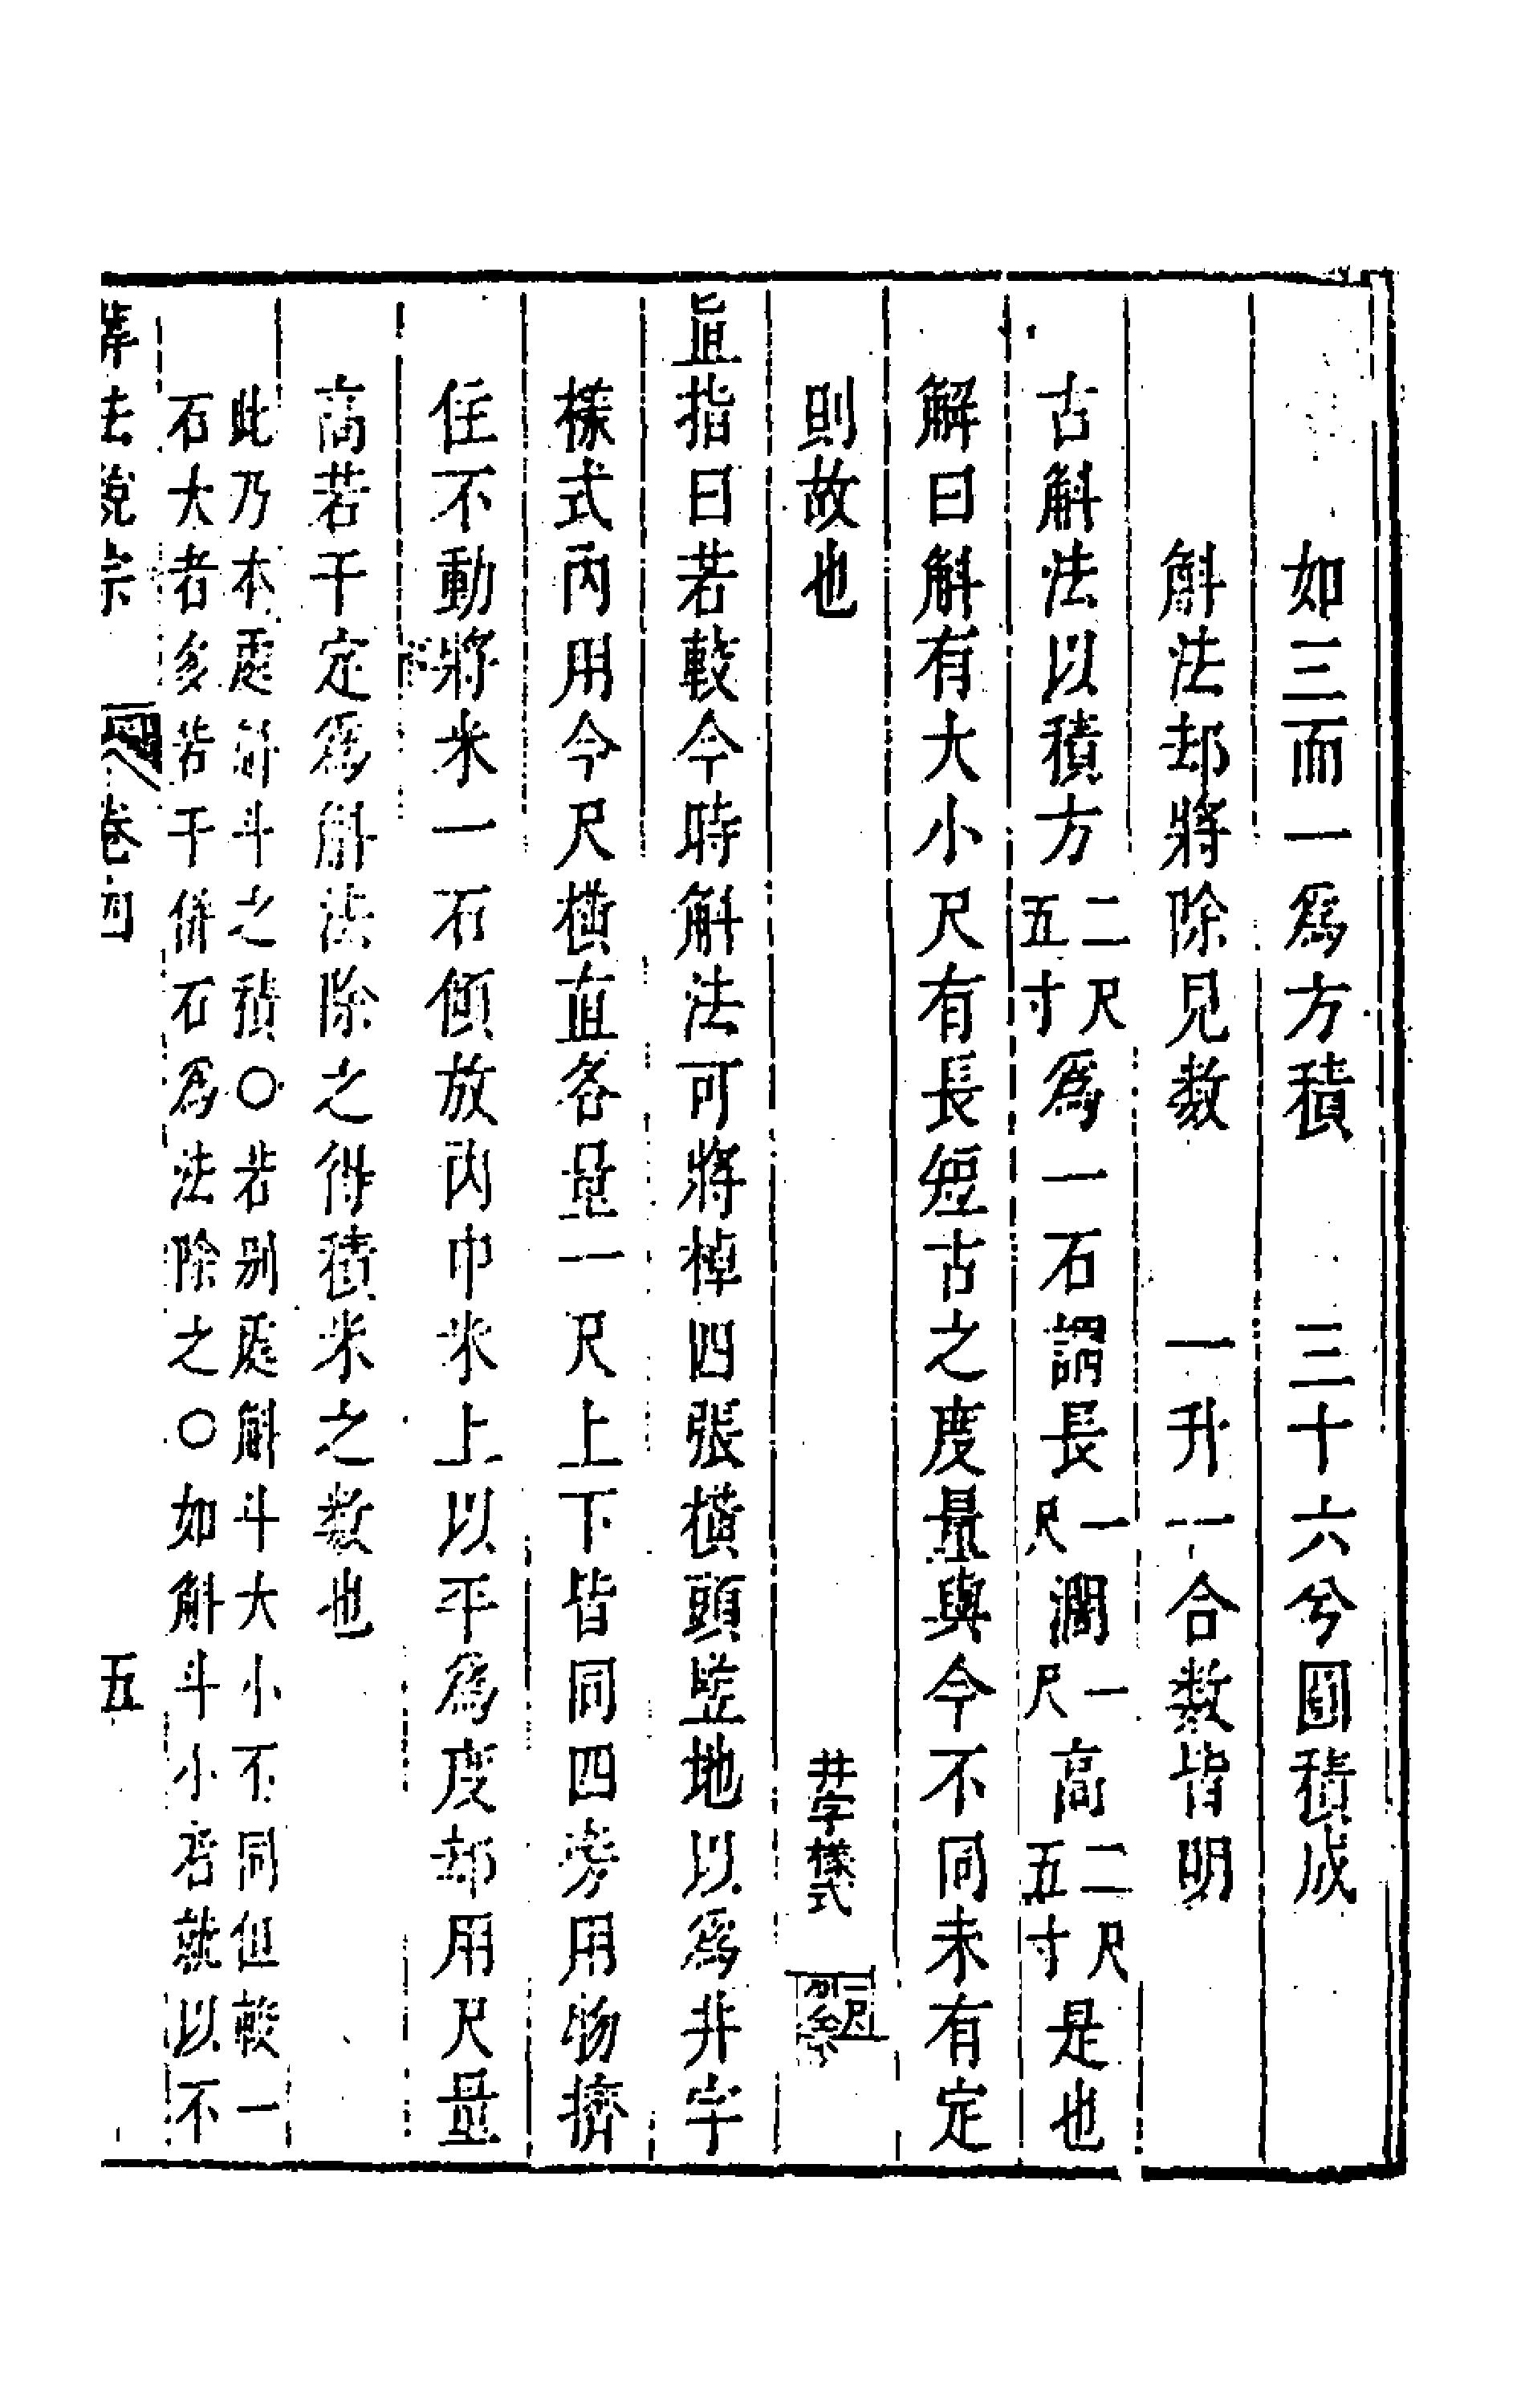 如三而一為方積　三十六兮圓積成
斛法却將除見数　一升一合数皆明
古斛法以積方二尺五寸為一石謂長一尺濶一尺高二尺五寸是也
解曰斛有大小尺有長短古之度量與今不同未有定
則故也　井字樣式
直指曰若較今時斛法可將棹四張橫頭竪地以為井字
樣式內用今尺橫直各量一尺上下皆同四旁用物擠
住不動將米一石傾放內巾米上以平為度却用尺量
高若干定為斛法除之得積米之数也
此乃本處斛斗之積〇若別處斛斗大小不同但較一
石大者多若干併石為法除之〇如斛斗小者就以不
算法統宗　卷四　五